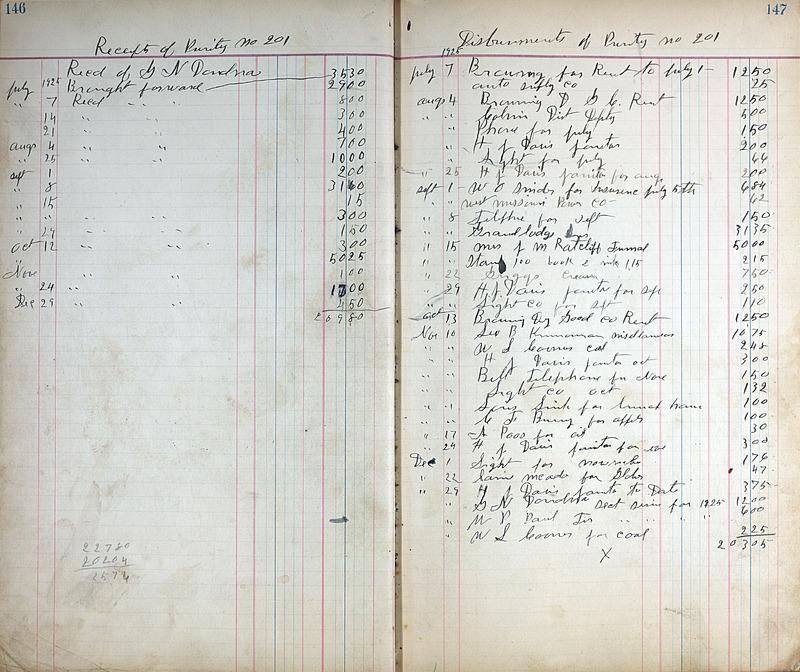 146
Receipts of Purity no 201
Recd of G N Dondna 35 30
July 1925 Brought forward 29 00
" 7 Recd " " 8 00
14 " " 3 00
21 " " 4 00
augs 4 " " 7 00
" 25 " " 10 00
sept 1 2 00
" 8 31 60
" 15 15
" " " 3 00
" 29 " " 1 50
oct 12 " " 3 00
" 50 25
Nove 1 00
" 24 " " 17 00
Dec 29 " " 4 50
209 80
227 80
202 04
25 76
147
Disbursments of Purity no 201
1925
July 7 Browning for Rent to July 1 12 50
auto supply co 25
augs 4 Browning D G C. Rent 12 50
" " Dist Dpty 5 00
" Phone for July 1 50
" H J Davis janitor 2 00
" Light for July 44
" 25 H J Davis janitor for aug 2 00
sept 1 W O for Insurince July 5th 6 84
" west missouri Power co 62
" 8 Telephne for sept 1 50
" " Grand lodge 31 35
" 15 mrs J M Ratcliff Funral 50 00
" " Stamp 100 book 2 1,15 2 15
" 22 Griggs cream 7 50
" 29 H J. Davis janitor for sep 2 50
" " Light co for spt 1 10
oct 13 Browning Dry Good co Rent 12 50
Nov 10 Geo B 10 75
" " W S coal 2 48
" H J Davis janitor oct 3 00
" Bell Telephone for Nove 1 50
" Light co oct 1 32
" " Sink for 1 00
" " for 1 00
" 17 for oil 30
" 24 H J Davis janitor for nov 3 00
Dec 1 Light for 1 76
" 22 meade for 47
" 29 H J Davis janitor to Date 3 75
" G N Dondna sect for 1925 12 00
" W P Paul " " " " 6 00
" W S for coal 2 25
203 05
X